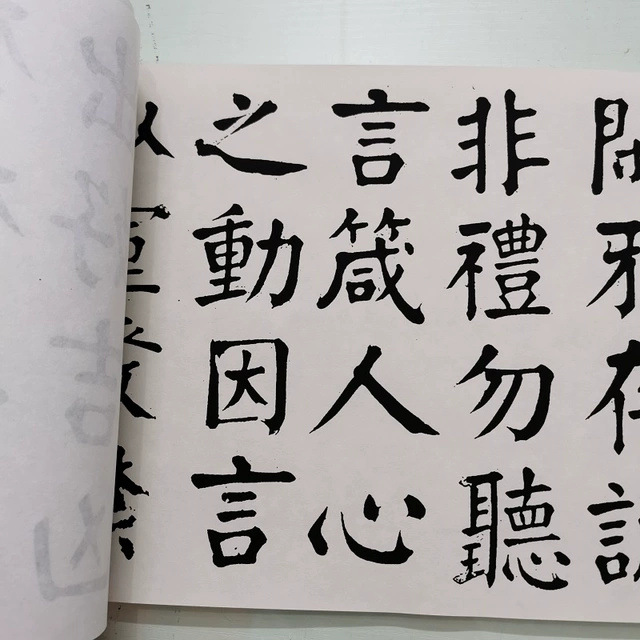 閑邪存誠
非禮勿聽
言箴人心
之動因言
以宣發禁